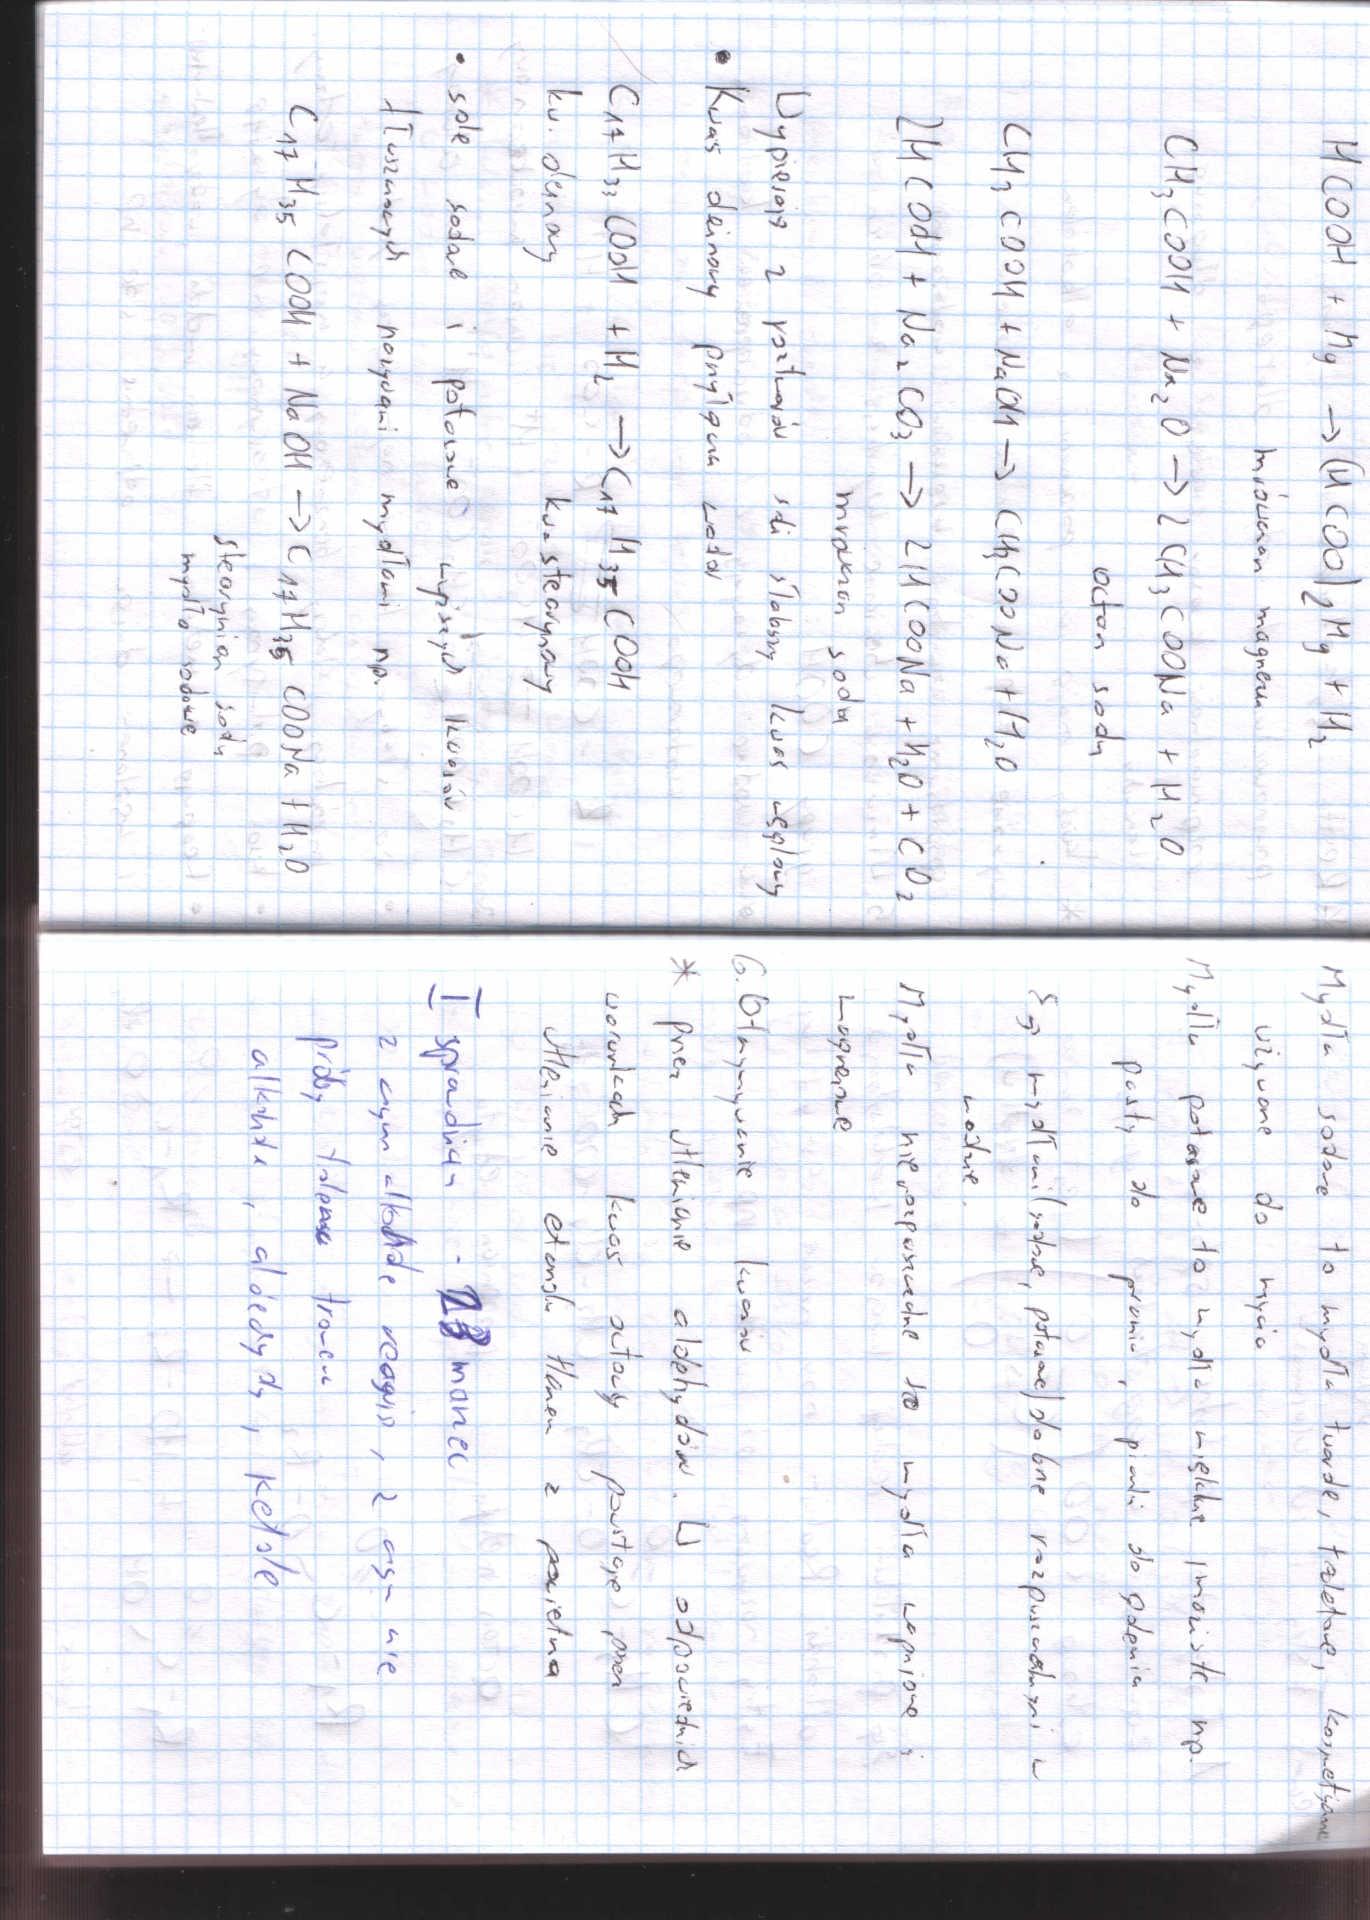 HCOOH + Mg → (HCOO)₂Mg + H₂
mrówczan magnezu
CH₃COOH + Na₂O → 2CH₃COONa + H₂O
octan sodu
CH₃COOH + NaOH → CH₃COONa + H₂O
2HCOOH + Na₂CO₃ → 2HCOONa + H₂O + CO₂
mrówczan sodu
Wypierają z roztworów soli słabszy kwas węglowy
• Kwas oleinowy przyłącza wodór
C₁₇H₃₃COOH + H₂ → C₁₇H₃₅COOH
kw. oleinowy kw. stearynowy
• sole sodowe i potasowe wyższych kwasów
tłuszczowych nazywani mydłami np.
C₁₇H₃₅COOH + NaOH → C₁₇H₃₅COONa + H₂O
stearynian sodu
mydło sodowe
Mydła sodowe to mydła twarde, toaletowe, kosmetyczne
używane do mycia
Mydła potasowe to mydła miękkie i maziste np.
pasty do prania, pianki do golenia
Są mydłami (sodowe, potasowe) dobrze rozpuszczalnymi w
wodzie.
Mydła nierozpuszczalne to mydła wapniowe i
magnezowe
6. Otrzymywanie kwasów
* przez utlenianie aldehydów. W odpowiednich
warunkach kwas octowy powstaje przez
utlenianie etanolu tlenem z powietrza
I sprawdzian - marzec
z czym alkohole reagują, z czym nie
próby
alkohole, aldehydy, ketole